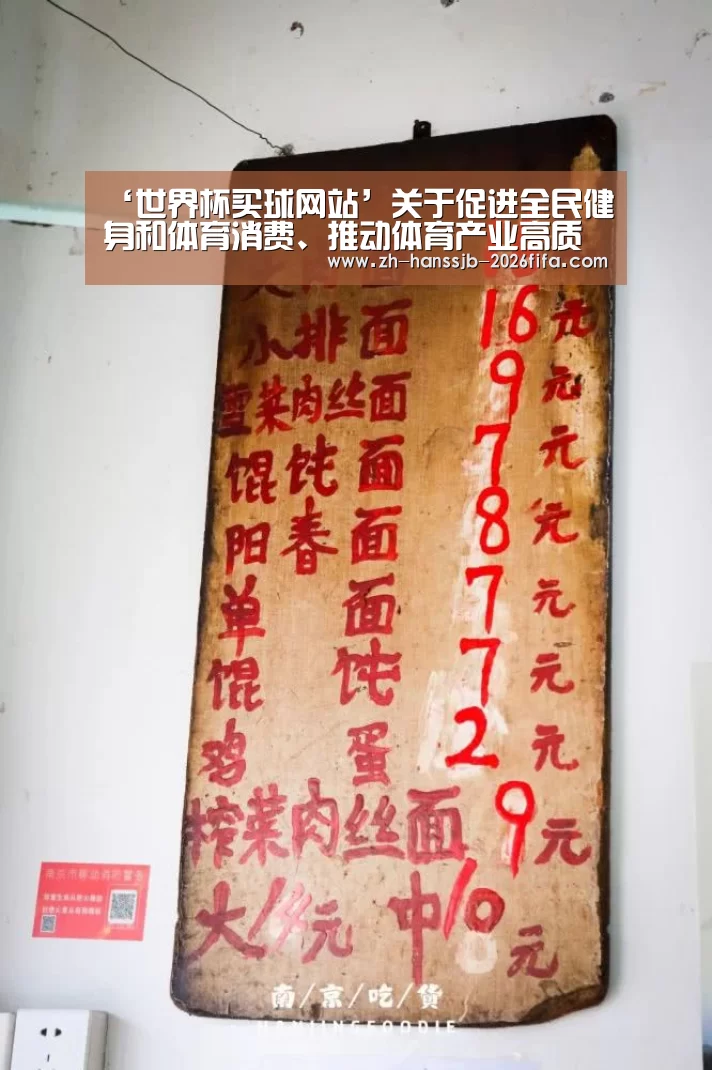 ‘世界杯买球网站’关于促进全民健
身和体育消费、推动体育产业高质
www.zh-hanssjb-2026fifa.com
小排面 16元
雪菜肉丝面 9元
馄饨面 7元
阳春面 8元
单面 7元
馄饨 7元
鸡蛋 2元
榨菜肉丝面 9元
大14元 中10元
南/京/吃/货
NANJINGFOODIE